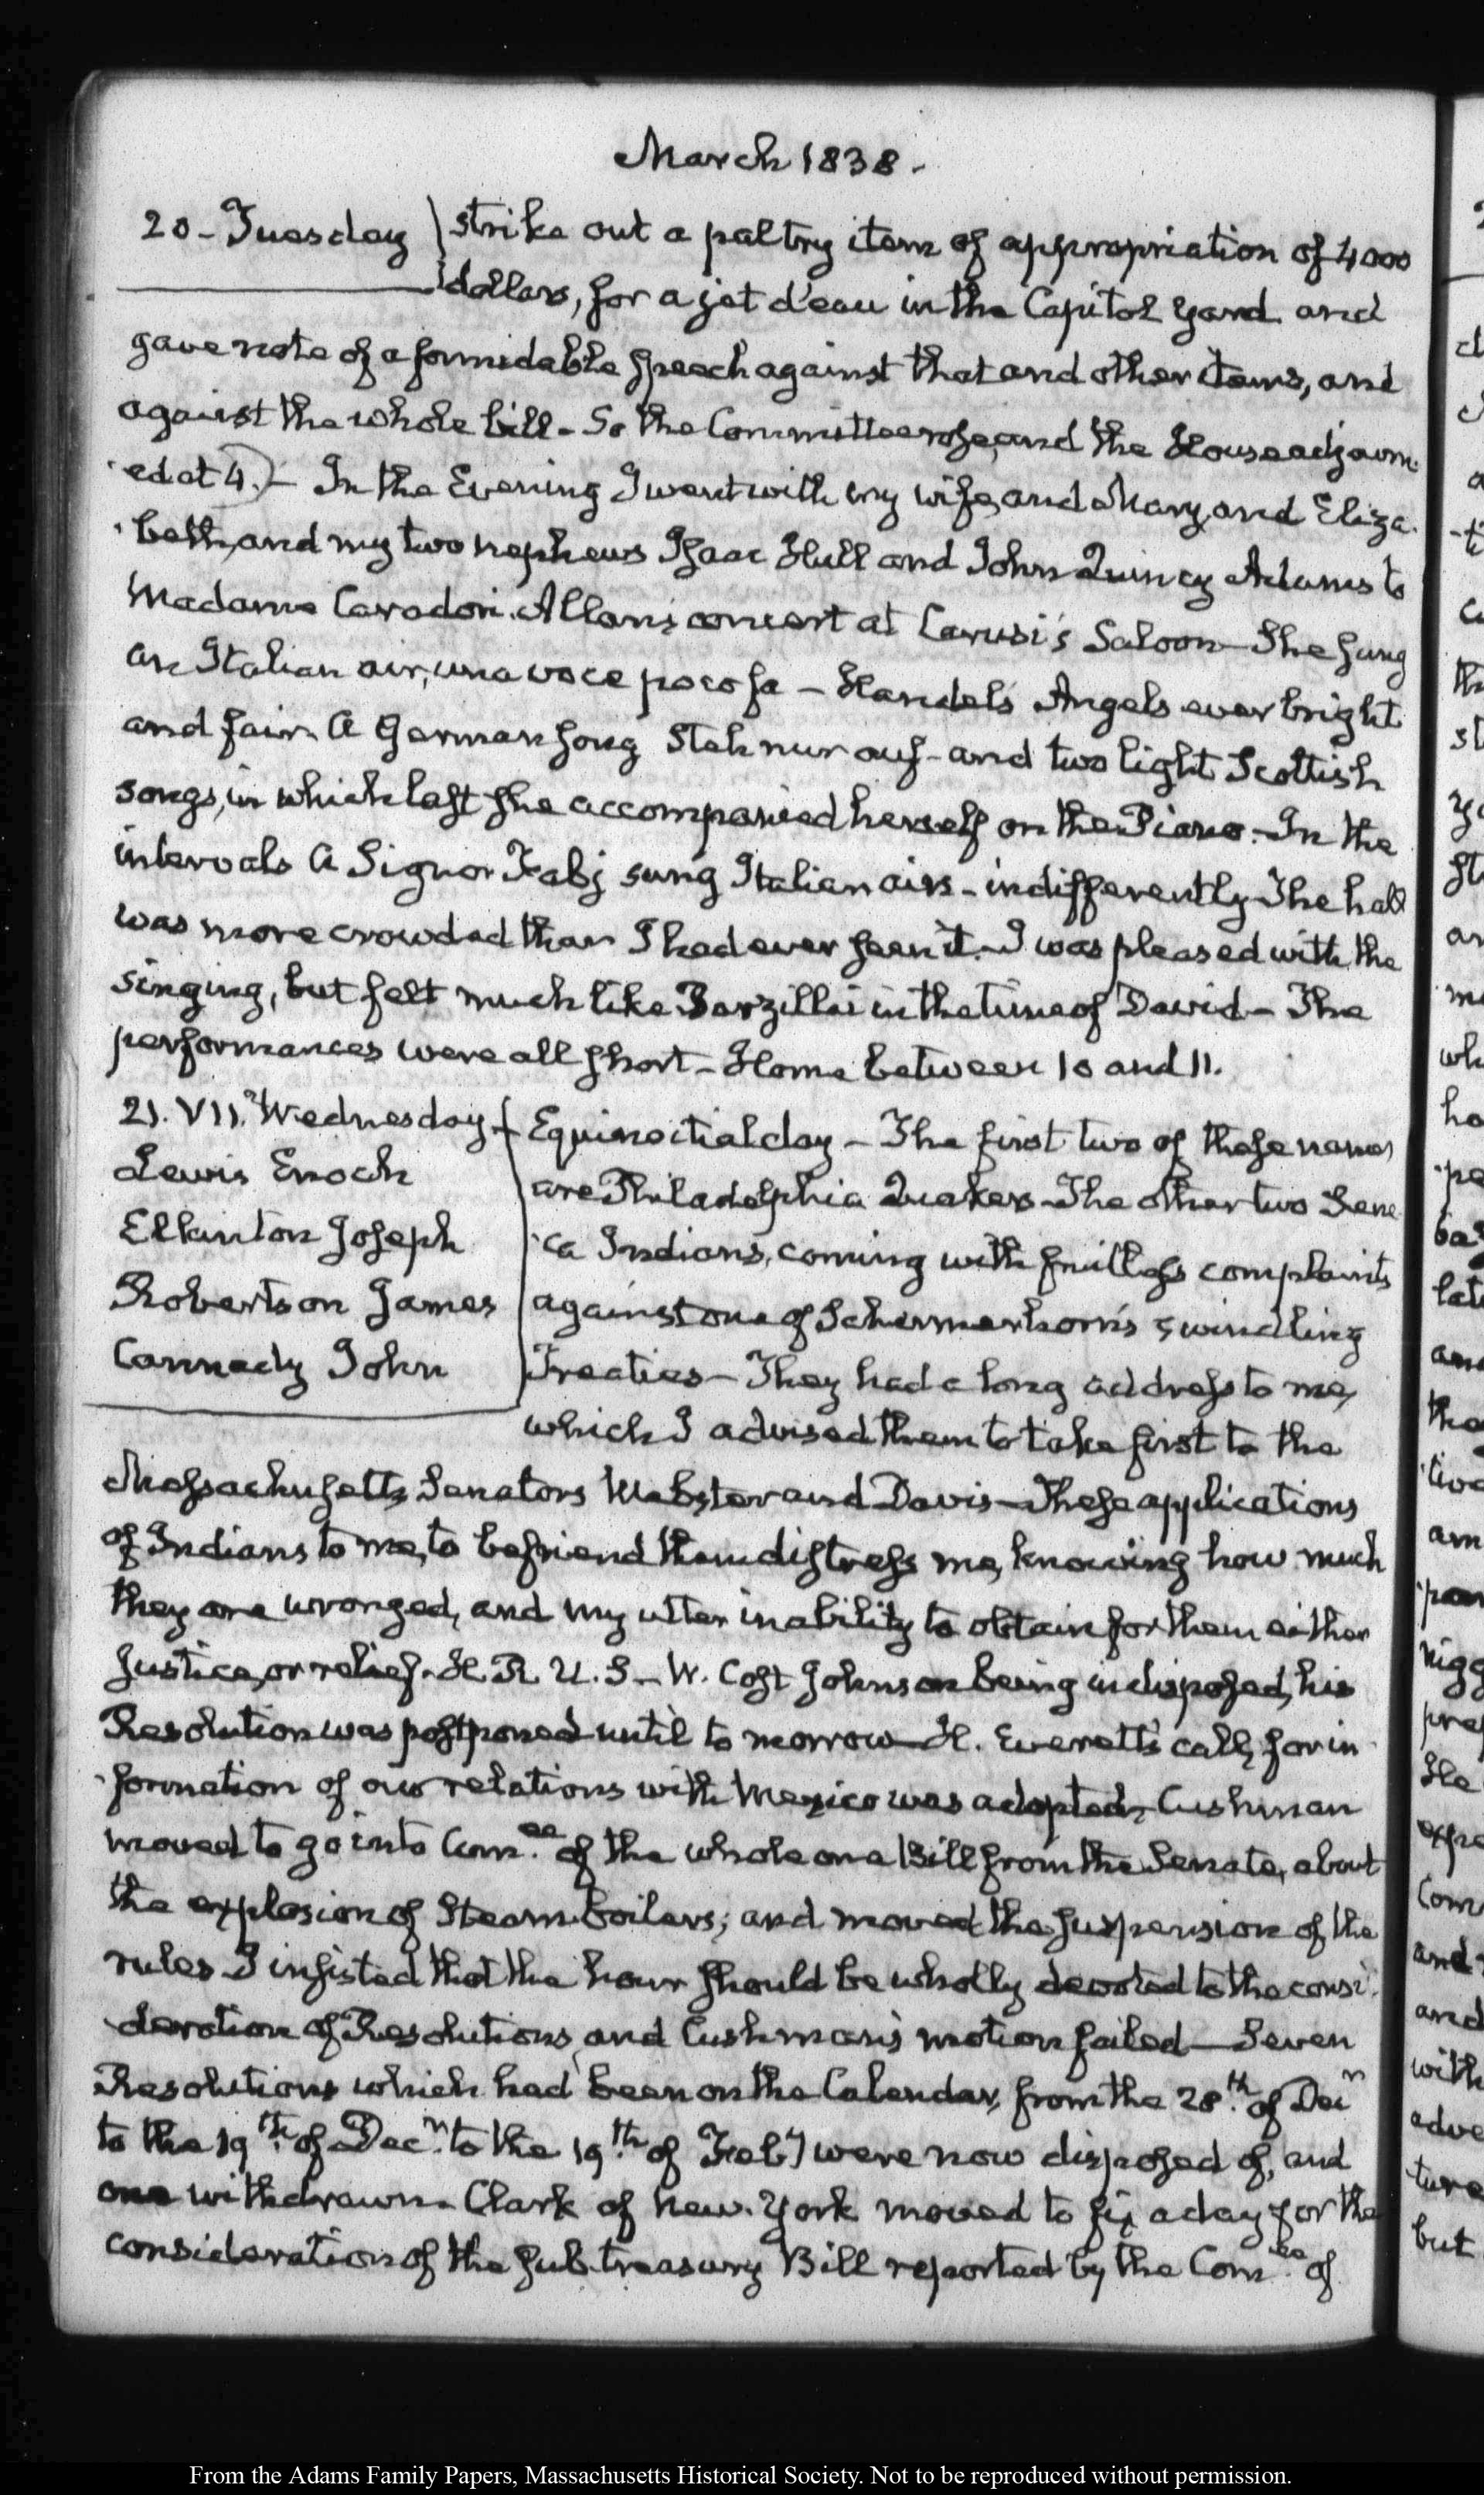 March 1838.
20 - Tuesday strike out a paltry item of appropriation of 4000
dollars, for a jet d'eau in the Capitol Yard and
gave note of a formidable speech against that and other items, and
against the whole bill - So the Committee rose, and the House adjourn-
-ed at 4.) - In the Evening I went with my wife, and Mary, and Eliza-
-beth, and my two nephews Isaac Hull and John Quincy Adams to
Madame Caradori Allan's concert at Carusi's Saloon - She sung
an Italian air, una voce poco fa - Handel's Angels ever bright
and fair. A German song Steh nur auf - and two light Scottish
songs, in which last she accompanied herself on the Piano. - In the
intervals A Signor Fabj sung Italian airs - indifferently - The hall
was more crowded than I had ever seen it. - I was pleased with the
singing, but felt much like Barzillai in the time of David - The
performances were all short - Home between 10 and 11.
21. VII. Wednesday Equinoctial day - The first two of these names
Lewis Enoch are Philadelphia Quakers - The other two Sene-
Elkinton Joseph -ca Indians, coming with fruitless complaints
Robertson James against one of Schermerhorn's swindling
Cannedy John Treaties - They had a long address to me,
which I advised them to take first to the
Massachusetts Senators Webster and Davis - These applications
of Indians to me, to befriend them distress me, knowing how much
they are wronged, and my utter inability to obtain for them either
justice, or relief. H. R. U. S. - W. Cost Johnson being indisposed, his
Resolution was postponed until to morrow - H. Everett's call, for in-
-formation of our relations with Mexico was adopted, - Cushman
moved to go into Comee. of the whole on a Bill from the Senate, about
the explosion of Steam-boilers; and moved the suspension of the
rules - I insisted that the hour should be wholly devoted to the consi-
-deration of Resolutions, and Cushman's motion failed - Seven
Resolutions which had been on the Calendar, from the 28th. of Decr
to the 19th. of Decr. to the 19th. of Feby were now disposed of, and
one withdrawn. - Clark of New-York moved to fix a day for the
consideration of the sub-treasury Bill reported by the Comee. of
From the Adams Family Papers, Massachusetts Historical Society. Not to be reproduced without permission.